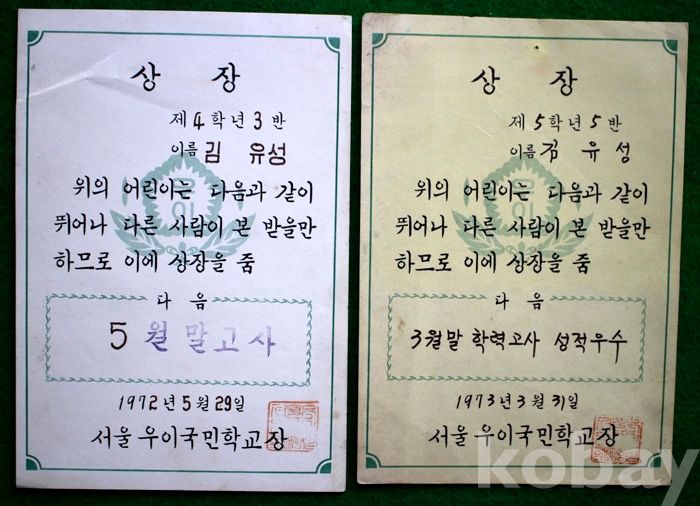 상 장
제 4 학년 3 반
이름 김 유성
위의 어린이는 다음과 같이
뛰어나 다른 사람이 본 받을만
하므로 이에 상장을 줌
다 음
5 월 말 고 사
1972 년 5 월 29 일
서울 우이국민학교장
상 장
제 5 학년 5 반
이름 김 유 성
위의 어린이는 다음과 같이
뛰어나 다른 사람이 본 받을만
하므로 이에 상장을 줌
다 음
3월말 학력고사 성적우수
1973 년 3 월 31 일
서울 우이국민학교장
kobay